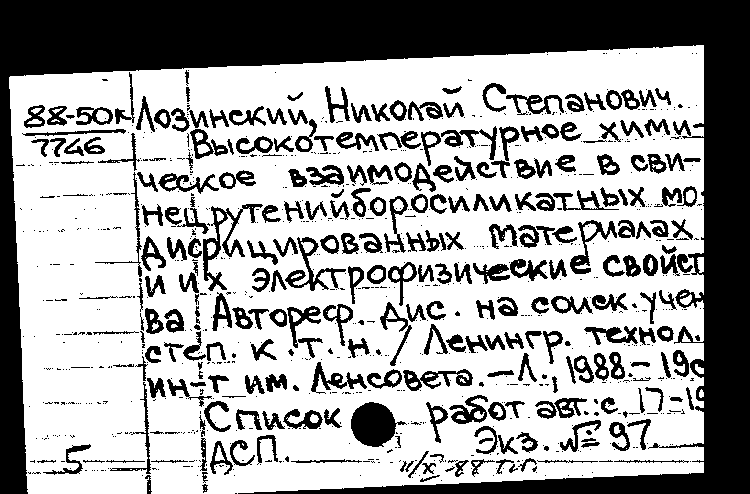 88-50к Лозинский, Николай Степанович.
7746 Высокотемпературное хими-
ческое взаимодействие в сви-
нецрутенийборосиликатных мо-
дифицированных материалах
и их электрофизические свойст
ва. Автореф. дис. на соиск. учен
степ. к.т.н. / Ленингр. технол.
ин-т им. Ленсовета. - Л., 1988. - 19с
Список работ авт.: с. 17-19
ДСП. Экз. № 97.
5